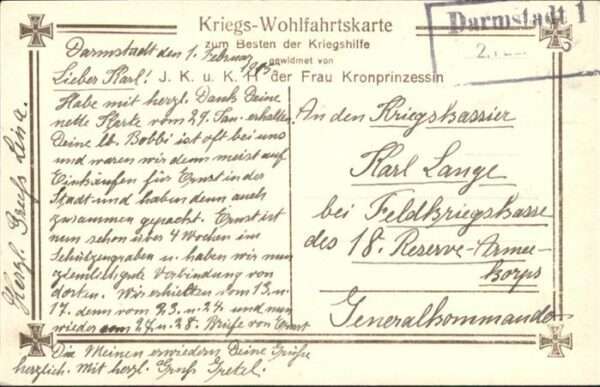 Kriegs-Wohlfahrtskarte
zum Besten der Kriegshilfe
gewidmet von
J. K. u. K. H. der Frau Kronprinzessin
Darmstadt 1
Darmstadt den 1. Februar
1915
Lieber Karl!
Habe mit herzl. Dank Deine
nette Karte vom 29. Jan. erhalten.
Deine lb. Bobbi ist oft bei uns
und waren wir denn meist auf
Einkäufen für Ernst in der
Stadt und haben denn auch
zusammen gepackt. Ernst ist
nun schon über 4 Wochen im
Schützengraben u. haben wir nun
ziemlich gute Verbindung von
dorten. Wir erhielten vom 13. u.
17. denn vom 23. u. 24. und nun
wieder vom 27. u. 28. Briefe von Ernst
Die Meinen erwiedern Deine Grüße
herzlich. Mit herzl. Gruß Gretel.
Herzl. Gruß Lina.
An den Kriegskassier
Karl Lange
bei Feldkriegskasse
des 18. Reserve-Armee-
Korps
Generalkommando